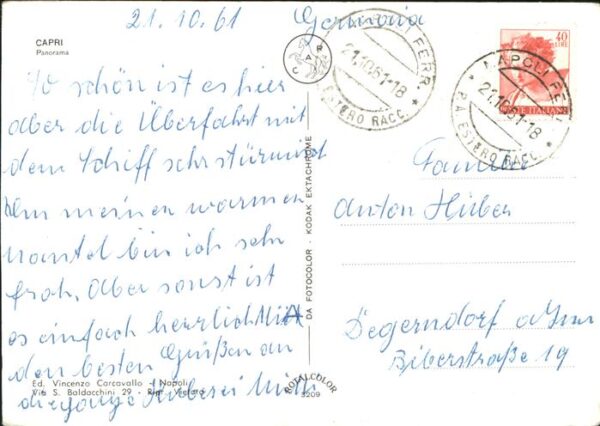 21.10.61 Germania
CAPRI
Panorama
So schön ist es hier
aber die Überfahrt mit
dem Schiff sehr stürmend
Um meinen warmen
Mantel bin ich sehr
froh. Aber sonst ist
es einfach herrlich Mit
den besten Grüßen an
die ganze
Ed. Vincenzo Carcavallo - Napoli
Via S. Baldacchini 29 - Rip. Vietata
DA FOTOCOLOR - KODAK EKTACHROME
ROTALCOLOR
3209
NAPOLI FERR.
21.10.61-18
ESTERO RACC.
40
LIRE
POSTE ITALIANE
NAPOLI FERR.
21.10.61-18
ESTERO RACC.
Familie
Anton Huber
Degerndorf a/Inn
Biberstraße 19